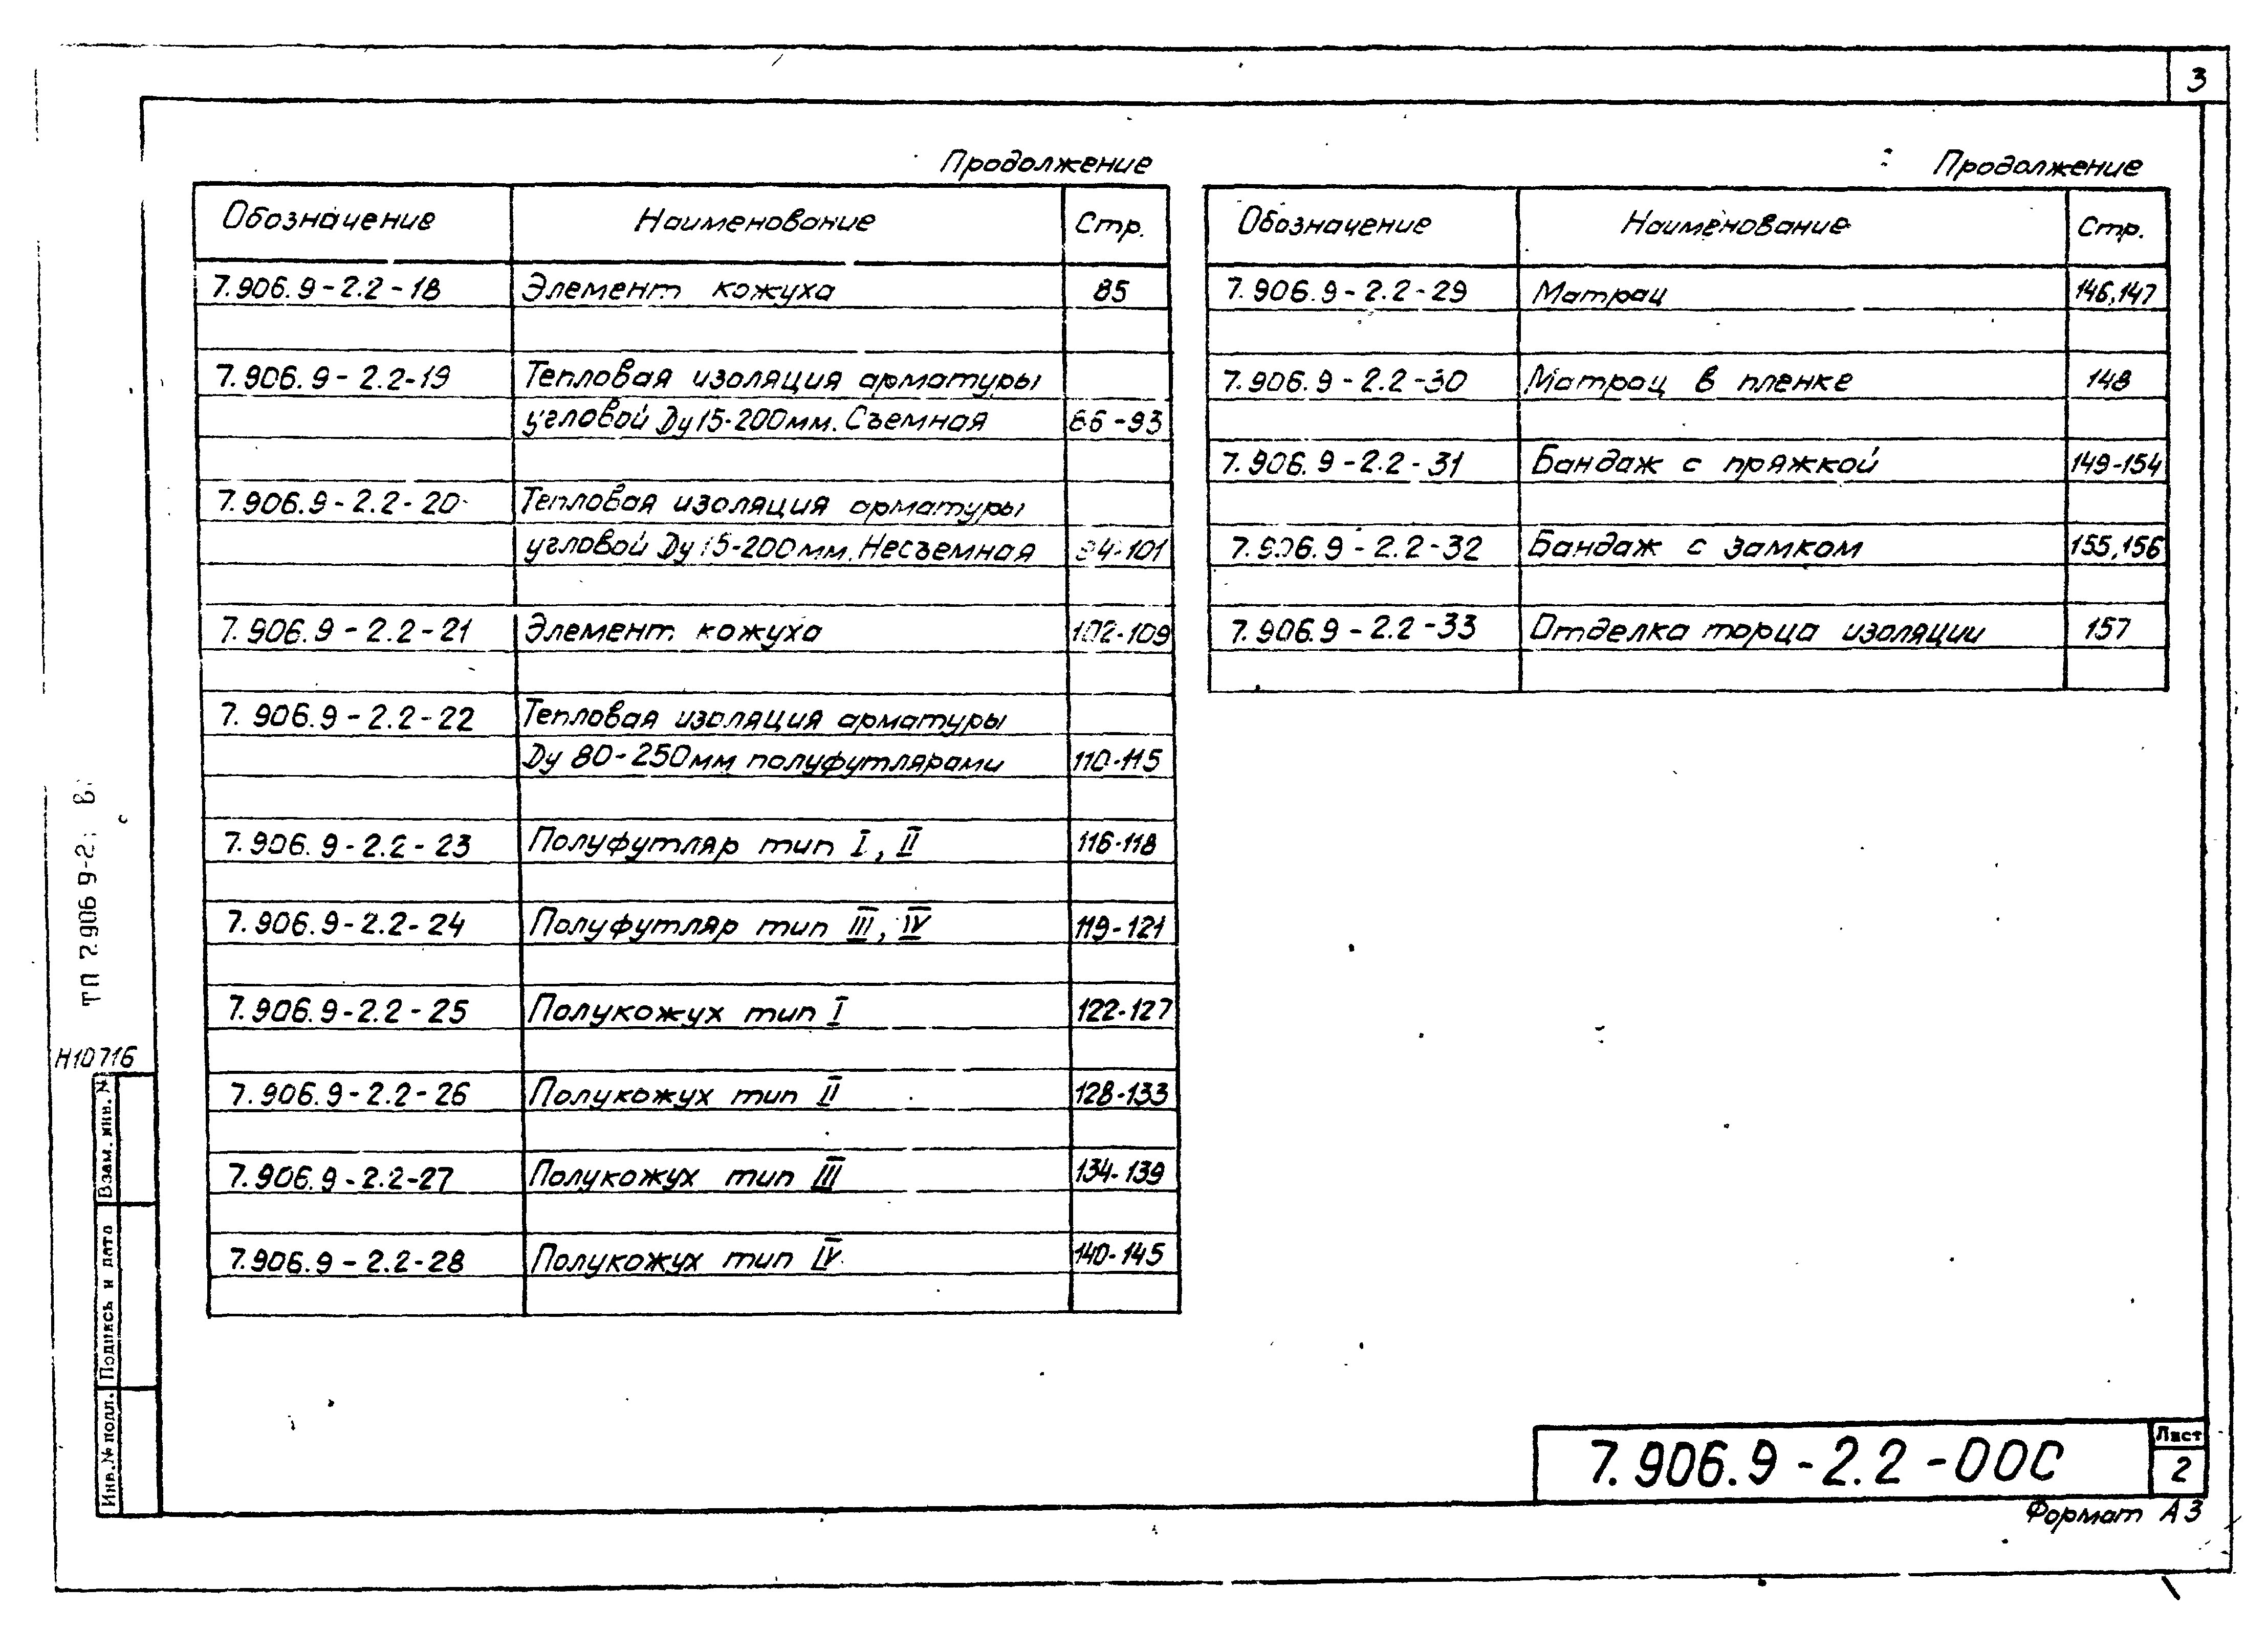 3
Продолжение
Обозначение Наименование Стр.
7.906.9-2.2-18 Элемент кожуха 85
7.906.9-2.2-19 Тепловая изоляция арматуры
угловой Ду 15-200мм. Съемная 86-93
7.906.9-2.2-20 Тепловая изоляция арматуры
угловой Ду 15-200мм. Несъемная 94-101
7.906.9-2.2-21 Элемент кожуха 102-109
7.906.9-2.2-22 Тепловая изоляция арматуры
Ду 80-250мм полуфутлярами 110-115
7.906.9-2.2-23 Полуфутляр тип I, II 116-118
7.906.9-2.2-24 Полуфутляр тип III, IV 119-121
7.906.9-2.2-25 Полукожух тип I 122-127
7.906.9-2.2-26 Полукожух тип II 128-133
7.906.9-2.2-27 Полукожух тип III 134-139
7.906.9-2.2-28 Полукожух тип IV 140-145
Продолжение
Обозначение Наименование Стр.
7.906.9-2.2-29 Матрац 146,147
7.906.9-2.2-30 Матрац в пленке 148
7.906.9-2.2-31 Бандаж с пряжкой 149-154
7.906.9-2.2-32 Бандаж с замком 155,156
7.906.9-2.2-33 Отделка торца изоляции 157
ТП 7.906 9-2. В.
Н10716
Взам. инв. №
Подпись и дата
Инв. № подл.
7.906.9-2.2-00С
Лист
2
Формат А3